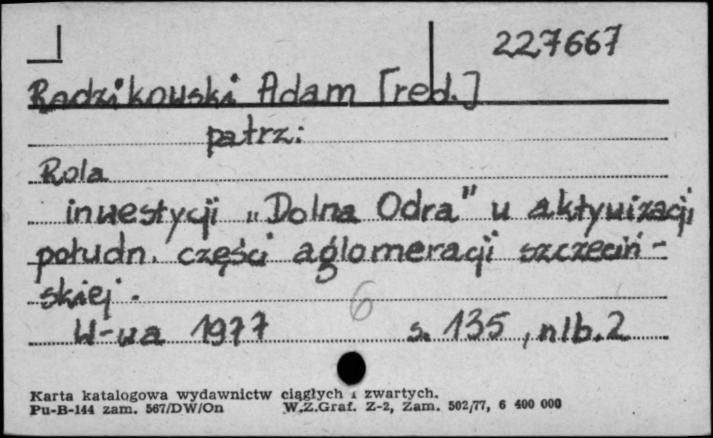 227667
Radzikowski Adam [red.]
patrz:
Rola
inwestycji „Dolna Odra" w aktywizacji
połudn. części aglomeracji szczeciń-
skiej.
6
W-wa 1977 s. 135, nlb. 2
Karta katalogowa wydawnictw ciągłych i zwartych.
Pu-B-144 zam. 567/DW/On W.Z.Graf. Z-2, Zam. 502/77, 6 400 000